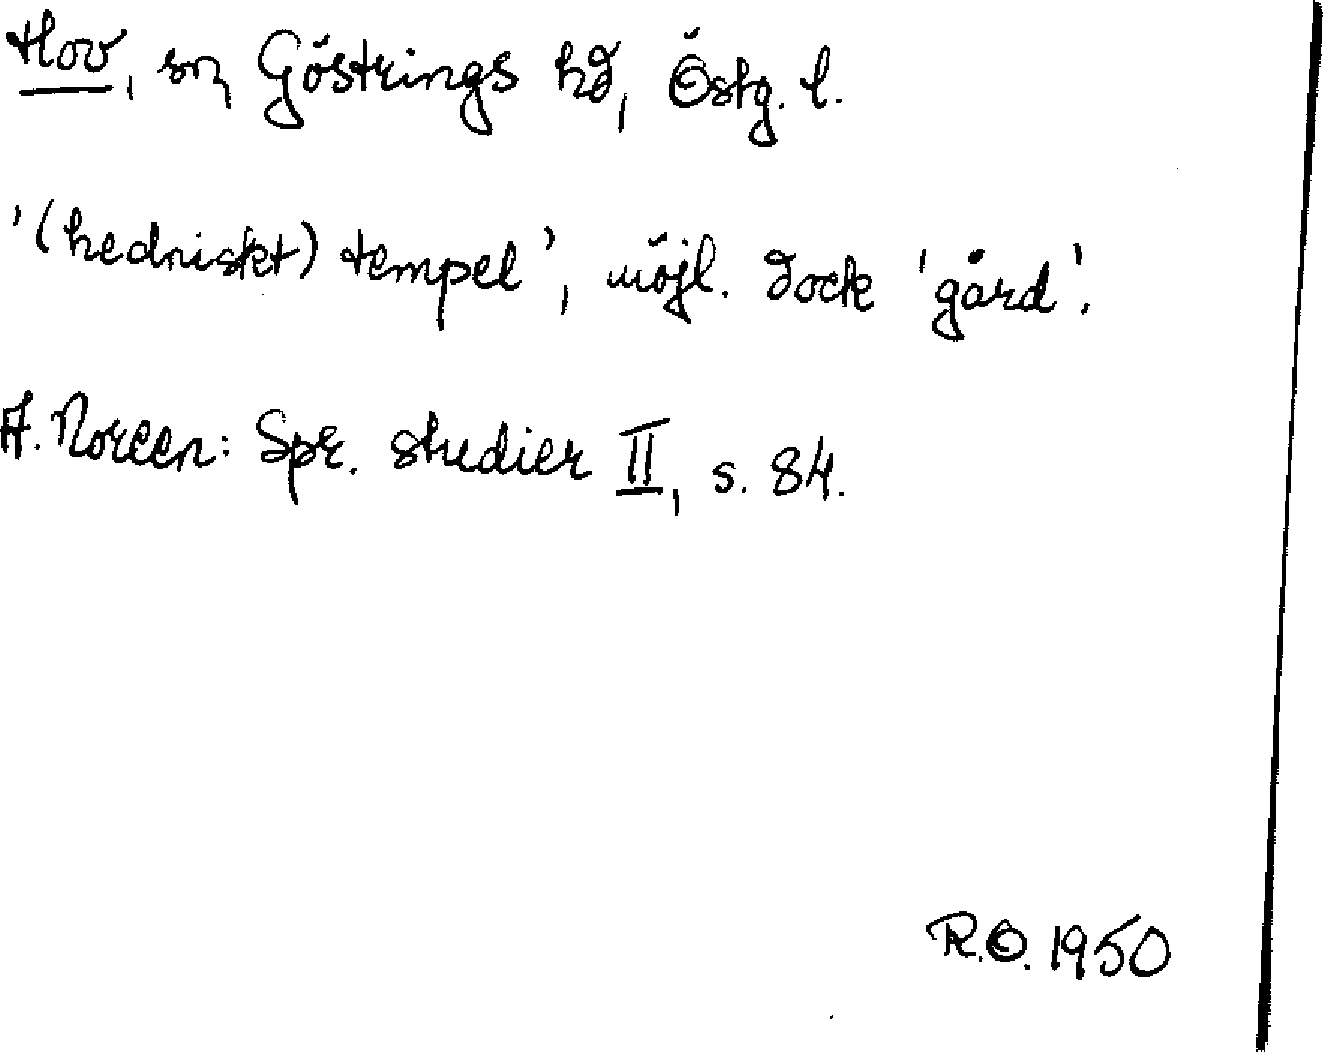 Hov, sn, Göstrings hd, Östg. l.
'(hedniskt) tempel', möjl. dock 'gård'.
A. Noreen: Spr. studier II, s. 84.
R.O. 1950